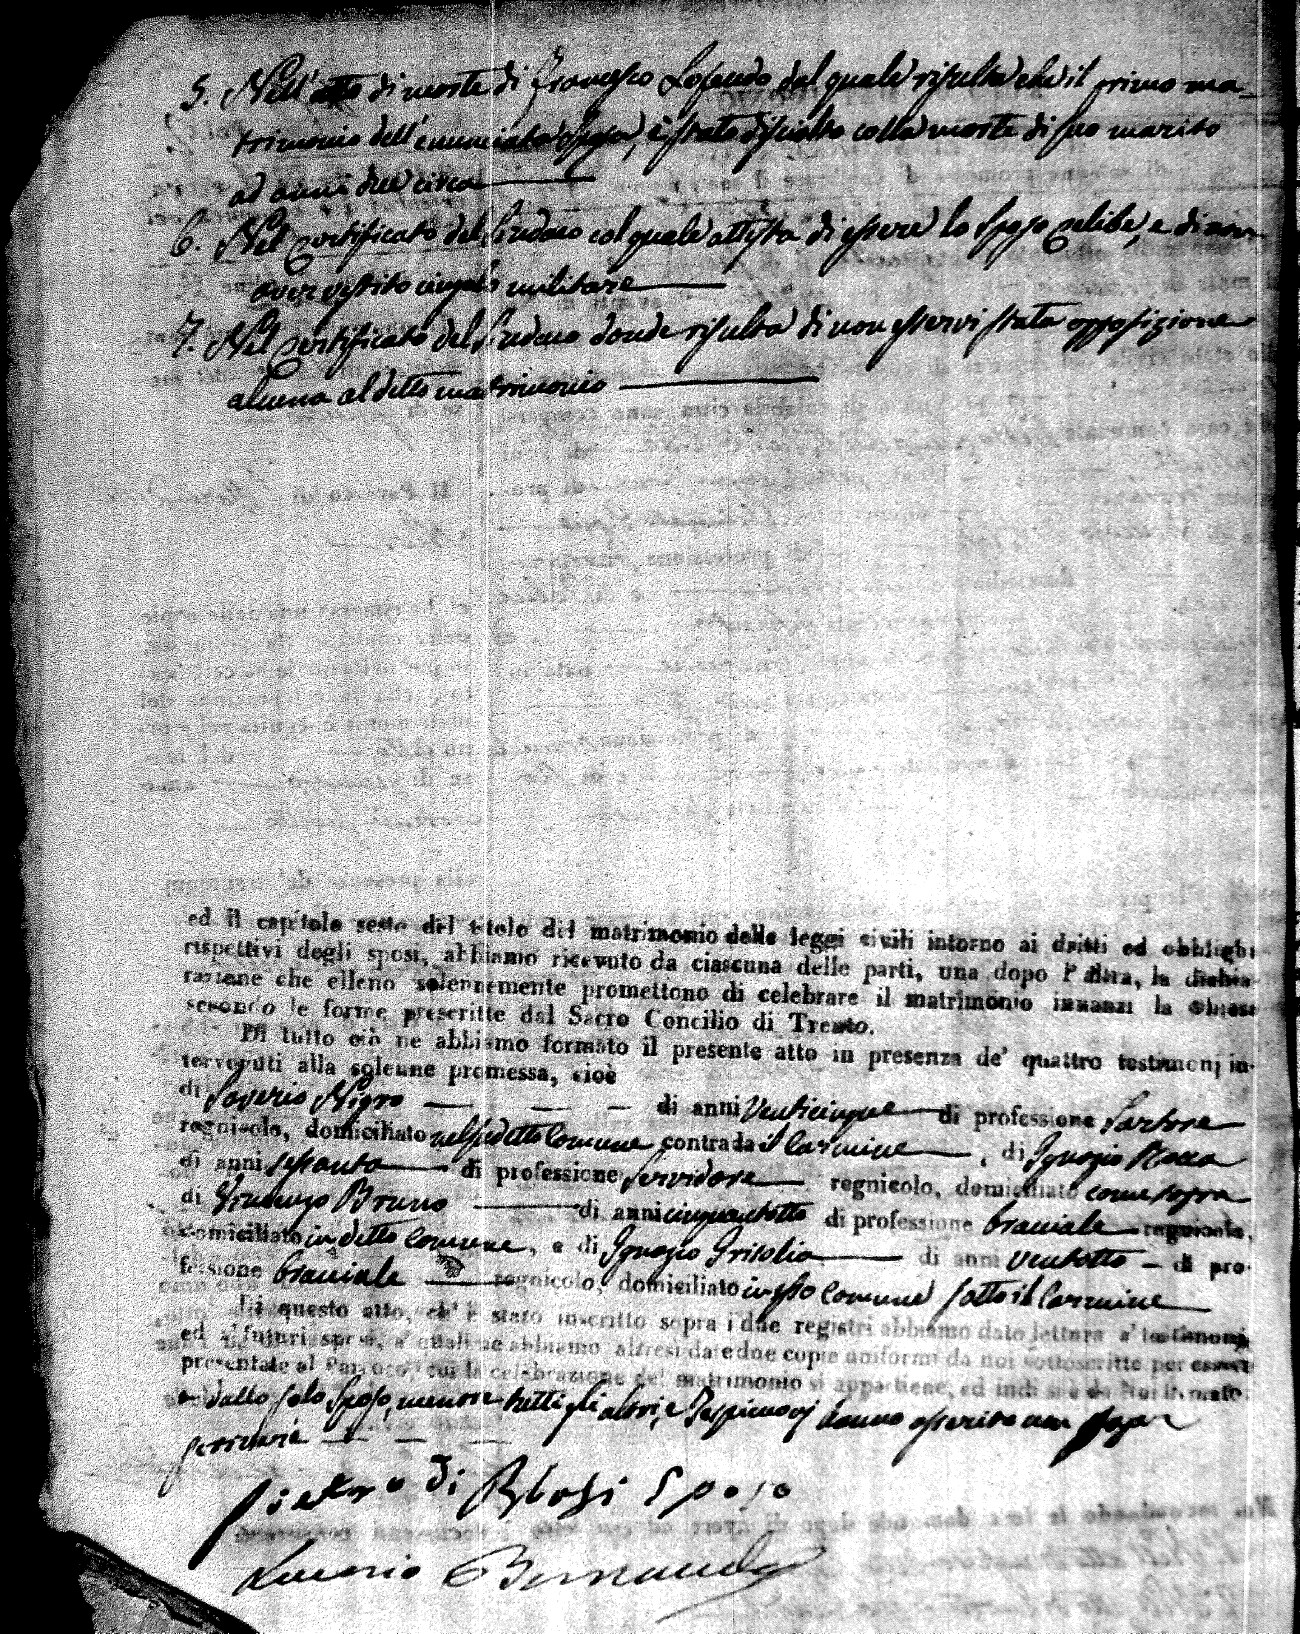 5. Nell'atto di morte di Francesco Losardo dal quale risulta che il primo ma-
trimonio dell'enunciata sposa, è stato disciolto colla morte di suo marito
ad anni due circa
6. Nel certificato del Sindaco col quale attesta di essere lo sposo celibe, e di non
aver vestito cingolo militare
7. Nel certificato del Sindaco donde risulta di non esservi stata opposizione
alcuna al detto matrimonio
ed il capitolo sesto del titolo del matrimonio delle leggi civili intorno ai dritti ed obblighi
rispettivi degli sposi, abbiamo ricevuto da ciascuna delle parti, una dopo l'altra, la dichia-
razione che elleno solennemente promettono di celebrare il matrimonio innanzi la Chiesa
secondo le forme prescritte dal Sacro Concilio di Trento.
Di tutto ciò ne abbiamo formato il presente atto in presenza de' quattro testimonj in-
tervenuti alla solenne promessa, cioè
di Saverio Nigro di anni venticinque di professione Sartore
regnicolo, domiciliato nel suddetto Comune contrada il Carmine, di Ignazio
di anni sessanta di professione Servidore regnicolo, domiciliato come sopra
di Vincenzo Bruno di anni cinquantotto di professione bracciale regnicolo,
domiciliato in detto Comune, e di Ignazio Grisolia di anni ventotto di pro-
fessione bracciale regnicolo, domiciliato in questo Comune sotto il Carmine
Di questo atto, ch' è stato inscritto sopra i due registri abbiamo dato lettura a' testimonj
ed a' futuri sposi, a' quali ne abbiamo altresì date due copie uniformi da noi sottoscritte per essere
presentate al Parroco, cui la celebrazione del matrimonio si appartiene, ed indi si è da Noi firmato
e dallo solo sposo, mentre tutti gli altri, e hanno asserito non saper
scrivere
pietro di Blasi Sposo